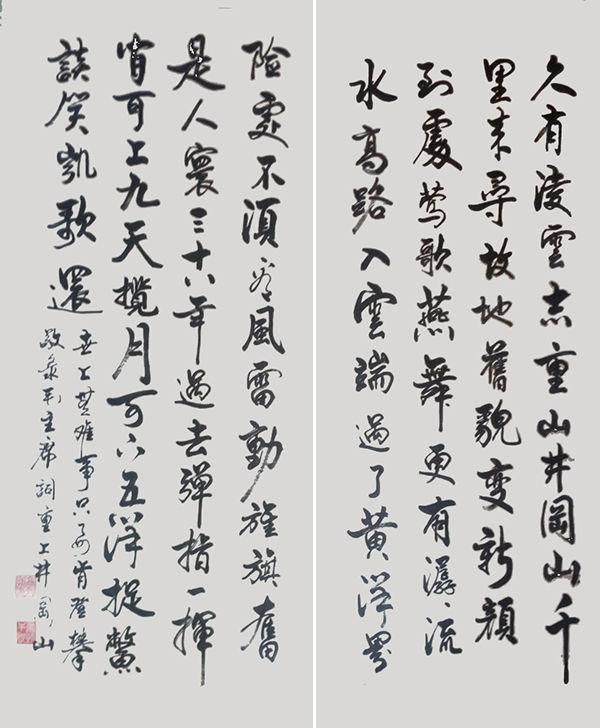 久有凌雲志重山井岡山千
里来尋故地舊貌變新顏
到處莺歌燕舞更有潺々流
水高路入雲端過了黄洋界
险處不須看風雷動旌旗奮
是人寰三十八年過去彈指一揮
間可上九天攬月可下五洋捉鱉
談笑凱歌還
世上無难事只要肯登攀
敬录毛主席詞重上井岡山